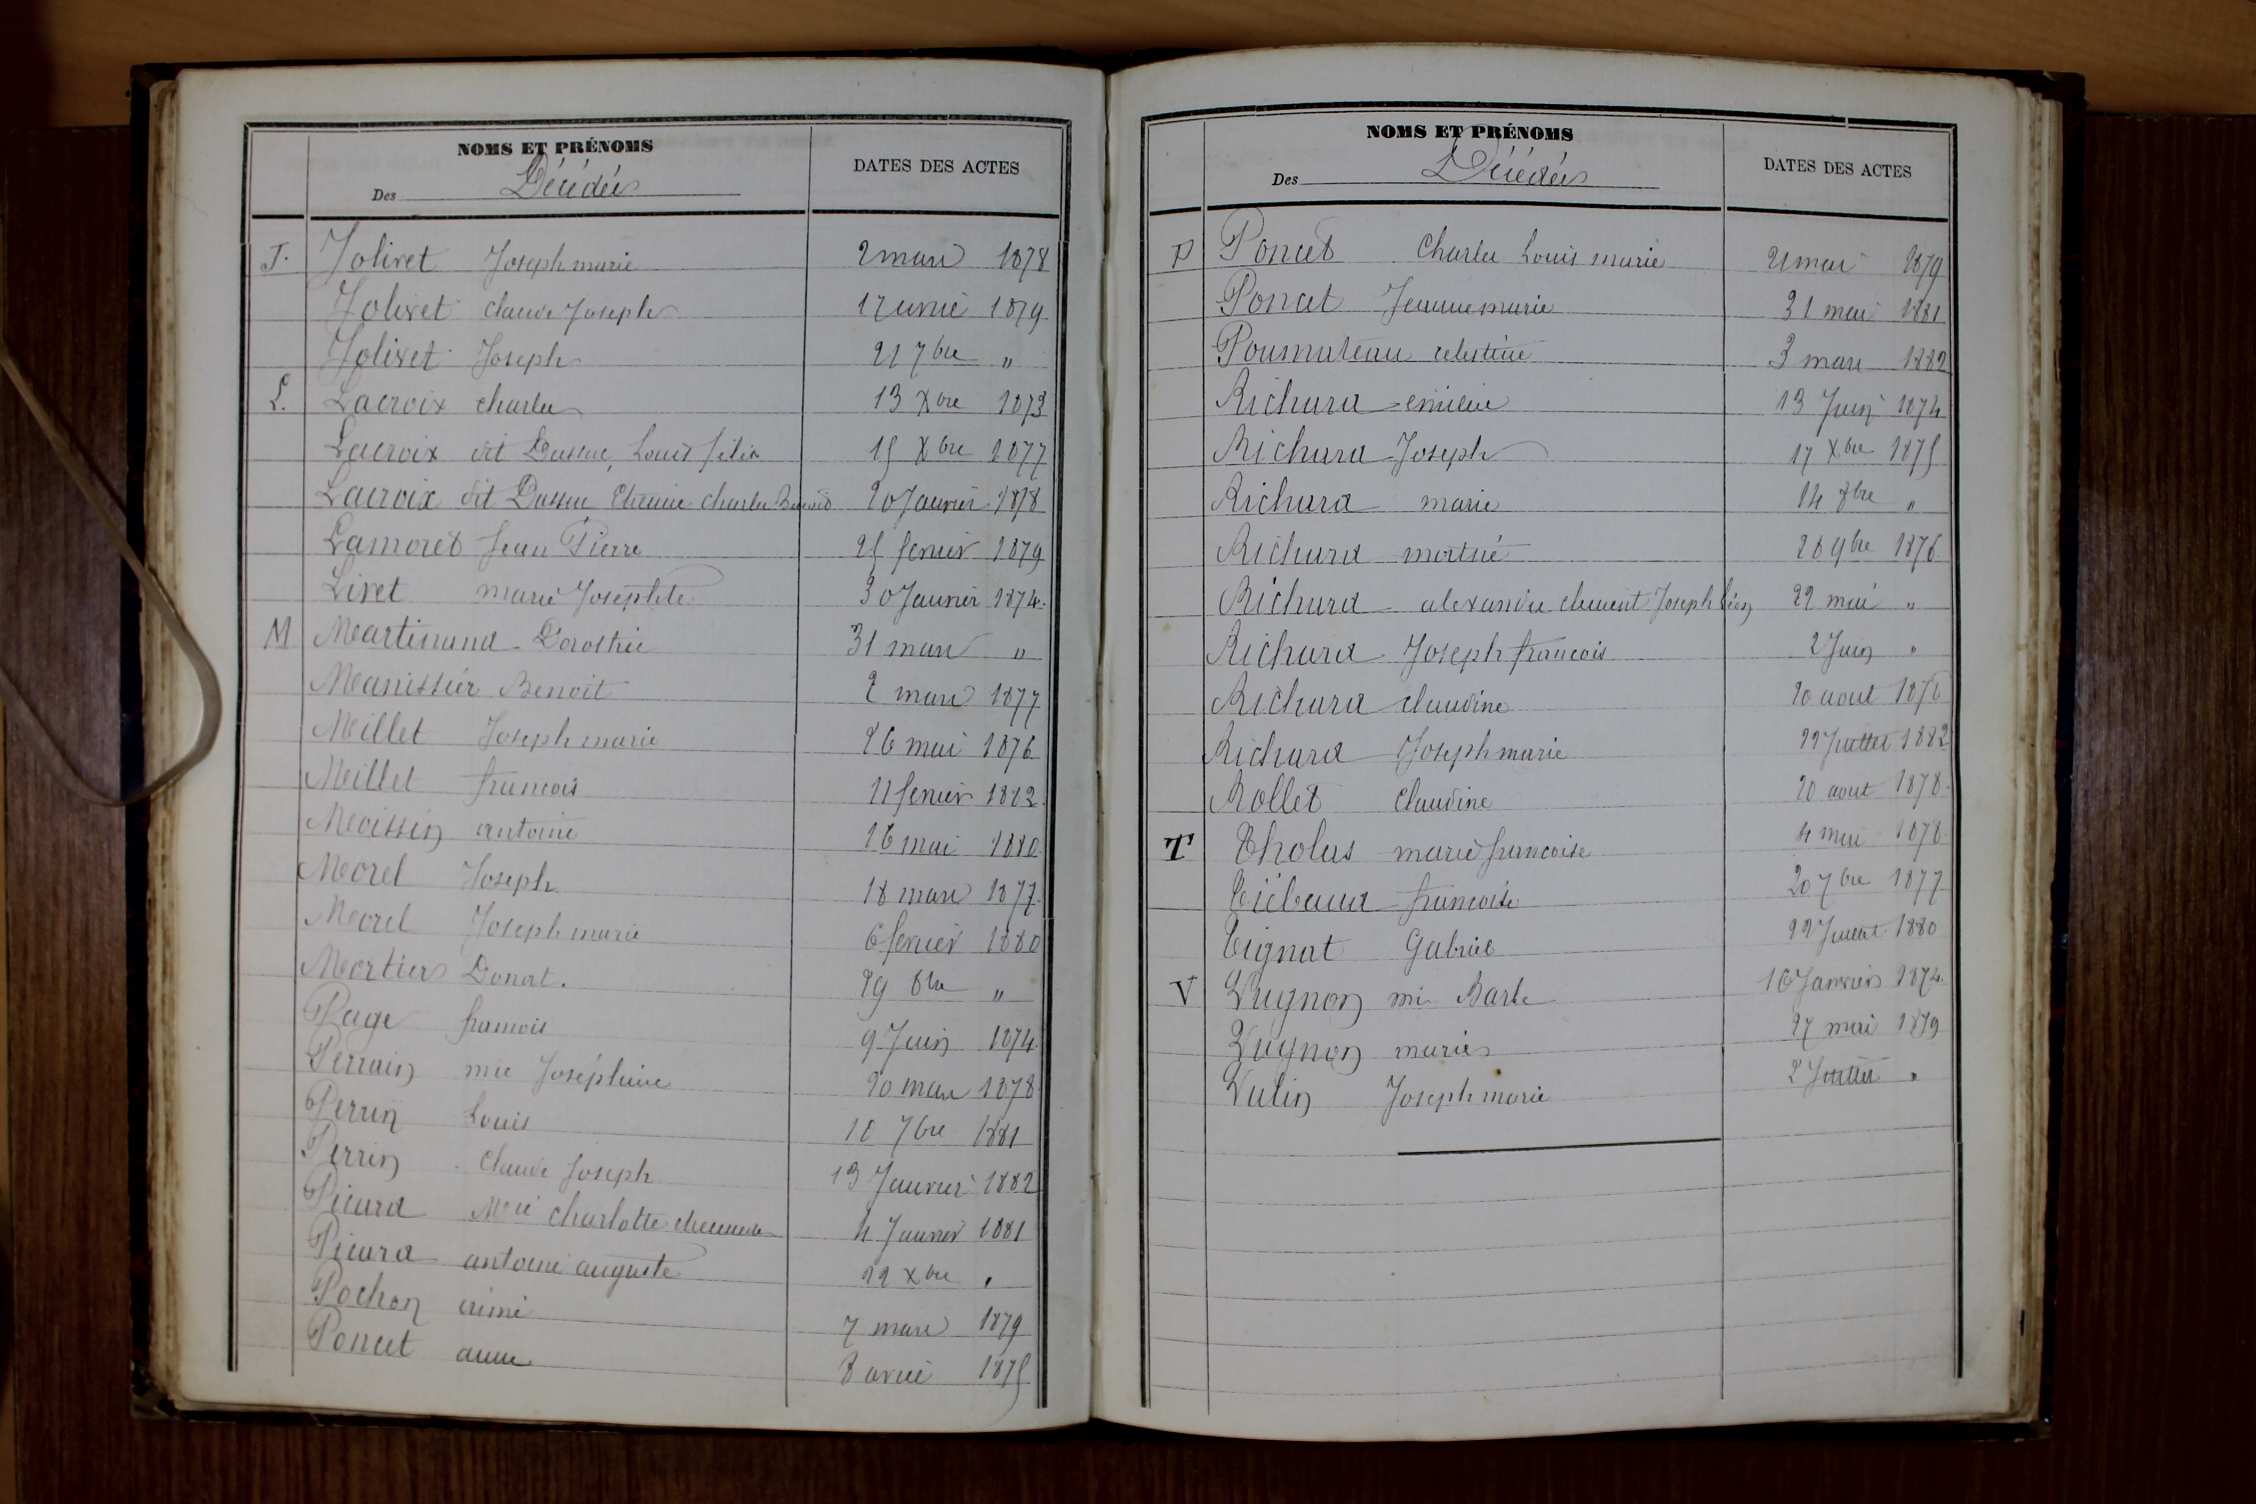 NOMS ET PRÉNOMS
Des Décédés
DATES DES ACTES
J. Jolivet Joseph marie 2 mars 1878
Jolivet Claude Joseph 17 avril 1879
Jolivet Joseph 21 7bre "
L. Lacroix Charles 13 Xbre 1873
Lacroix dit Dussuc, Louis félix 15 Xbre 1877
Lacroix dit Dussuc Etienne Charles 20 Janvier 1878
Lamoret Jean Pierre 25 fevrier 1879
Livet marie Josephte 30 Janvier 1874
M Martinand Dorothée 31 mars "
Manissier Benoit 2 mars 1877
Millet Joseph marie 26 mai 1876
Millet francois 11 fevrier 1882
Moissin antoine 16 mai 1880
Morel Joseph 18 mars 1877
Morel Joseph marie 6 fevrier 1880
Mortier Donat. 29 8bre "
Page francois 9 Juin 1874
Perrain mie Joséphine 20 mars 1878
Perrin Louis 10 7bre 1881
Perrin Claude Joseph 13 Janvier 1882
Picard Mie Charlotte 4 Janvier 1881
Picard antoine auguste 22 Xbre "
Pochon aimé 7 mars 1879
Poncet anne 8 avril 1875
NOMS ET PRÉNOMS
Des Décédés
DATES DES ACTES
P Poncet Charles Louis marie 2 mai 1879
Poncet Jeanne marie 31 mai 1881
Poumuteau celestine 3 mars 1882
Richard emilie 13 Juin 1874
Richard Joseph 17 Xbre 1875
Richard marie 14 8bre "
Richard mortné 26 9bre 1876
Richard alexandre clement Joseph Léon 22 mai "
Richard Joseph francois 2 Juin "
Richard claudine 20 aout 1878
Richard Joseph marie 22 Juillet 1882
Rollet Claudine 20 aout 1878
T Tholas marie francoise 4 mai 1878
Tiébaud francoise 20 7bre 1877
Tignat Gabriel 22 Juillet 1880
V Vugnon mie Barbe 16 Janvier 1874
Vugnon marie 27 mai 1879
Vulin Joseph marie 2 Juillet "